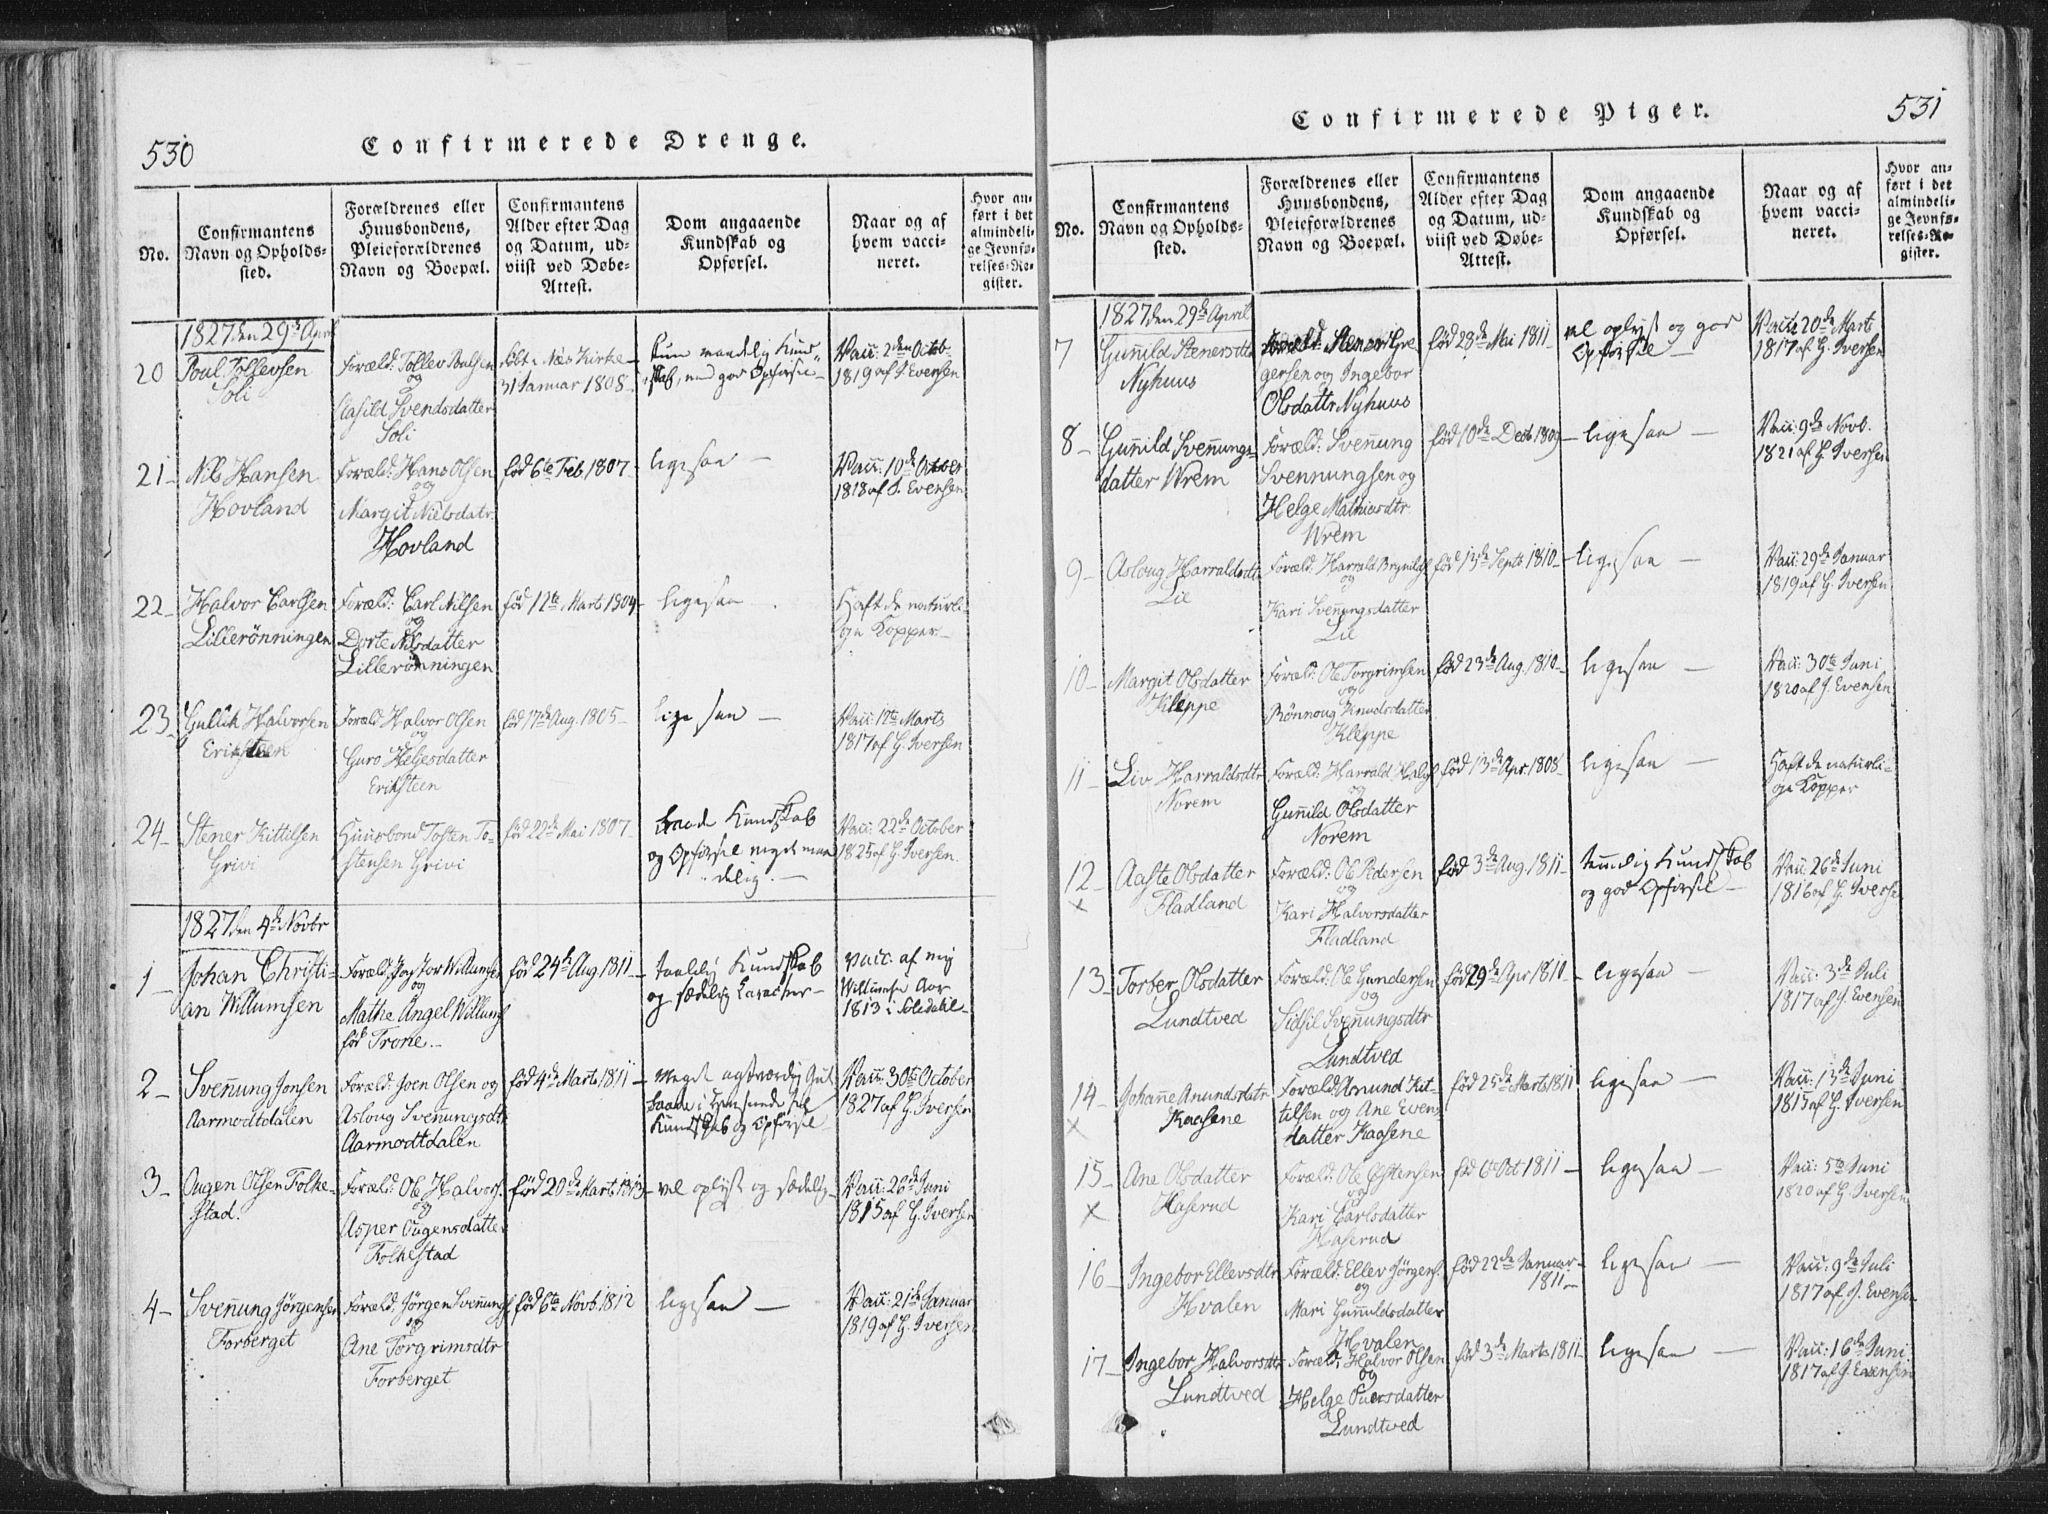 530
Confirmerede Drenge.
No.
Confirmantens
Navn og Opholds-
sted.
Forældrenes eller
Huusbondens,
Pleieforældrenes
Navn og Boepæl.
Confirmantens
Alder efter Dag
og Datum, ud-
viist ved Døbe-
Attest.
Dom angaaende
Kundskab og
Opførsel.
Naar og af
hvem vacci-
neret.
Hvor an-
ført i det
almindeli-
ge Jevnfø-
relses-Re-
gister.
1827 den 29de April
20
Poul Tollefsen
Soli
Foræld: Tollev Poulsen
og
Aasild Svendsdatter
Soli
døbt i Næs Kirke
31 Januar 1808
kun maadelig Kund-
skab, med god Opførsel
Vacc: 2den Octob.
1819 af J. Evensen
21
Nils Hansen
Hovland
Foræld: Hans Olsen
og
Margit Nielsdatr
Hovland
fød 6te Feb. 1807
ligesaa
Vacc: 10de October
1818 af J. Evensen
22
Halvor Carlsen
Lillerönningen
Foræld: Carl Nilsen
og
Dorte Nilsdatter
Lillerönningen
fød 12te Marts 1804
ligesaa
Haft de naturli-
ge Kopper
23
Gullik Halvorsen
Eriksteen
Foræld: Halvor Olsen
og
Guro Helgesdatter
Eriksteen
fød 17de Aug. 1805
ligesaa
Vacc: 12te Marts
1817 af G. Iversen
24
Stener Kittilsen
Grivi
Huusbond Tosten To-
stensen Grivi
fød 22de Mai 1807
baade Kundskab
og Opførsel meget maa-
delig.
Vacc: 22de October
1825 af G. Iversen.
1827 den 4de Novbr
1
Johan Christi-
an Willumsen
Foræld: Pastor Willumsen
og
Mathe Angel Willums
fød Trone.
fød 24de Aug 1811
taalelig Kundskab
og sædelig Caracter
vacc. af mig
Willumsen Aar
1813 i
2
Svennung Jonsen
Aarmodtdalen
Foræld: Joen Olsen og
Asloug Svennungsdtr
Aarmodtdalen
fød 4de Marts 1811
Meget
baade i
Kundskab og Opførsel
Vacc: 30te October
1827 af G. Iversen
3
Augen Olsen Folke-
stad.
Foræld: Ole Halvors.
og
Asper Augensdatter
Folkestad
fød 20de Marts 1813
vel oplyst og sædelig
Vacc: 26de Juni
1815 af G. Iversen
4
Svennung Jørgensen
Forberget
Foræld: Jørgen Svennungs
og
Ane Torgrimsdtr
Forberget
fød 6te Novb. 1812
ligesaa
Vacc: 21de Januar
1819 af G. Iversen
531
Confirmerede Piger.
No.
Confirmantens
Navn og Opholds-
sted.
Forældrenes eller
Huusbondens,
Pleieforældrenes
Navn og Boepæl.
Confirmantens
Alder efter Dag
og Datum, ud-
viist ved Døbe-
Attest.
Dom angaaende
Kundskab og
Opførsel.
Naar og af
hvem vacci-
neret.
Hvor an-
ført i det
almindeli-
ge Jevnfø-
relses-Re-
gister.
1827 den 29de April
7
Gunnild Stenersdtr
Nyhuus
Foræld: Stener Gre
gersen og Ingebor
Olsdattr Nyhuus
fød 28de Mai 1811
vel oplyst og god
Opførsel
Vacc: 20de Marts
1817 af G. Iversen
8
Gunnild Svennungs-
datter Wrem
Foræld: Svennung
Svennungsen og
Helge Mathiasdtr
Wrem
fød 10de Decb 1809
ligesaa
Vacc: 9de Novb.
1821 af G. Iversen
9
Asloug Harraldsdtr
Lie
Foræld: Harrald Brynilds
og
Kari Svennungsdatter
Lie
fød 13de Septb 1810
ligesaa
Vacc: 29de Januar
1819 af G. Iversen
10
Margit Olsdatter
Kleppe
Foræld: Ole Torgrimsen
og
Rönnoug Knudsdatter
Kleppe
fød 23de Aug. 1810
ligesaa
Vacc: 30te Juni
1820 af J. Evensen
11
Liv Harraldsdtr
Norem
Foræld: Harrald Halvs
og
Gunnild Olsdatter
Norem
fød 13de Apr. 1808
ligesaa
Haft de naturli-
ge Kopper
12
x
Aaste Olsdatter
Fladland
Foræld: Ole Pedersen
og
Kari Halvorsdatter
Fladland
fød 3de Aug. 1811
temmelig Kundskab
og god Opførsel
Vacc: 26de Juni
1816 af G. Iversen
13
Torber Olsdatter
Lundtved
Foræld: Ole Gundersen
og
Sidsil Svennungsdtr
Lundtved
fød 29de Apr 1810
ligesaa
Vacc: 3de Juli
1817 af J. Evensen
14
x
Johanne Anundsdatr
Kaasene
Foræld: Anund Kit-
tilsen og Ane Evens
datter Kaasene
fød 25de Marts 1811
ligesaa
Vacc: 13de Juni
1815 af G. Iversen
15
x
Ane Olsdatter
Haserud
Foræld: Ole Estensen
og
Kari Carlsdatter
Haserud
fød 6te Oct 1811
ligesaa
Vacc: 5te Juni
1820 af G. Iversen
16
Ingebor Ellevsdtr
Hvalen
Foræld: Ellev Jørgens.
og
Mari Gunnuldsdatter
Hvalen
fød 22de Januar
1811
ligesaa
Vacc: 9de Juli
1817 af J. Evensen
17
Ingebor Halvorsdtr
Lundtved
Foræld: Halvor Olsen
og
Helge Puersdatter
Lundtved
fød 3de Marts 1811
ligesaa
Vacc: 16de Juni
1817 af J. Evensen